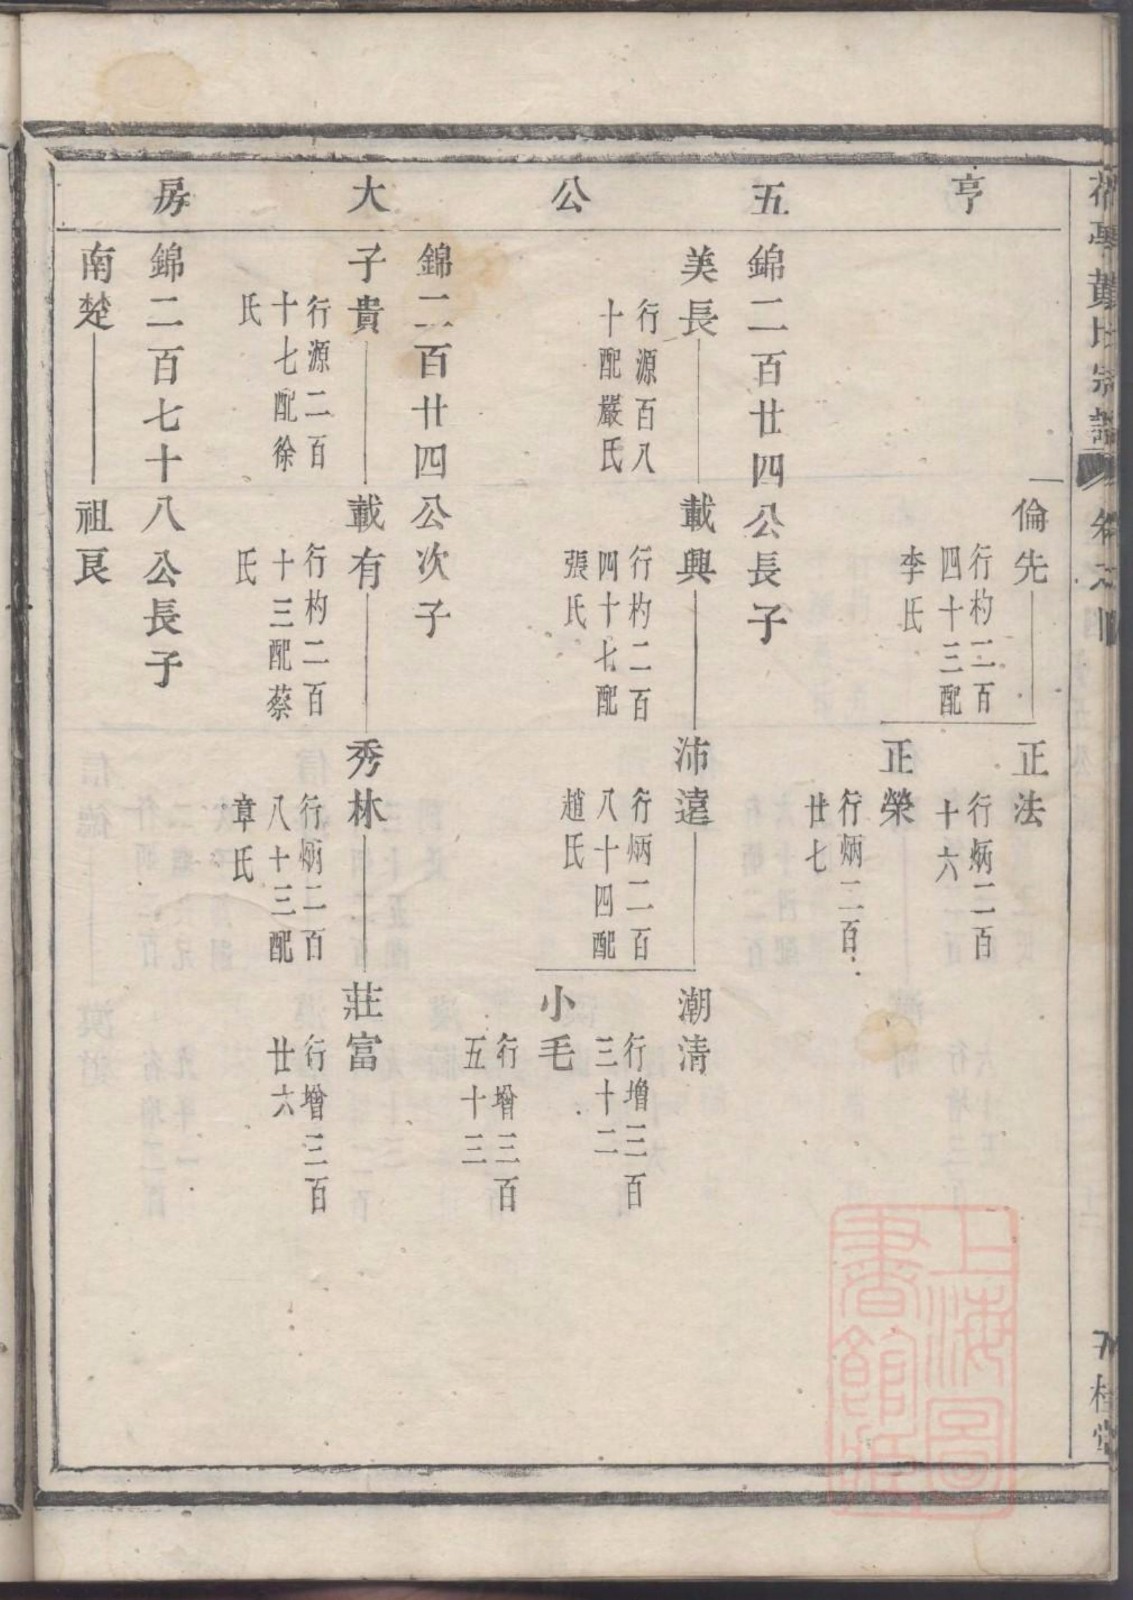 亨五公大房
倫先
行杓二百
四十三配
李氏
正法
行炳二百
十六
正榮
行炳二百
廿七
錦二百廿四公長子
美長
行源百八
十配嚴氏
載興
行杓二百
四十七配
張氏
沛遠
行炳二百
八十四配
趙氏
潮清
行增三百
三十二
小毛
行增三百
五十三
錦二百廿四公次子
子貴
行源二百
十七配徐
氏
載有
行杓二百
十三配蔡
氏
秀林
行炳二百
八十三配
章氏
莊富
行增三百
廿六
錦二百七十八公長子
南楚
祖良
上海圖
書館藏